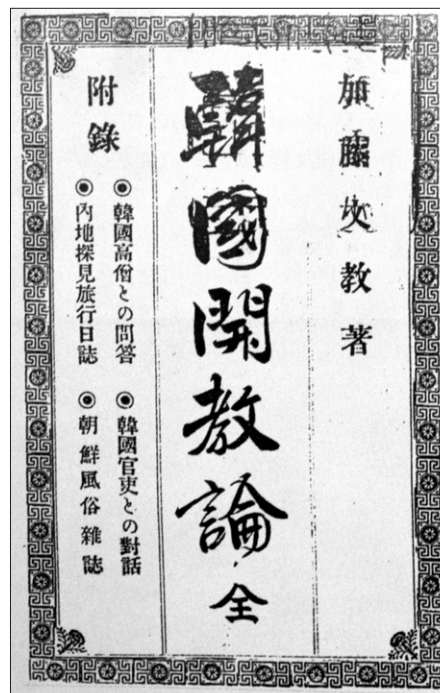 加藤文教著
韓國開教論 全
附錄
◉韓國高僧との問答 ◉韓國官吏との對話
◉內地探見旅行日誌 ◉朝鮮風俗雜誌